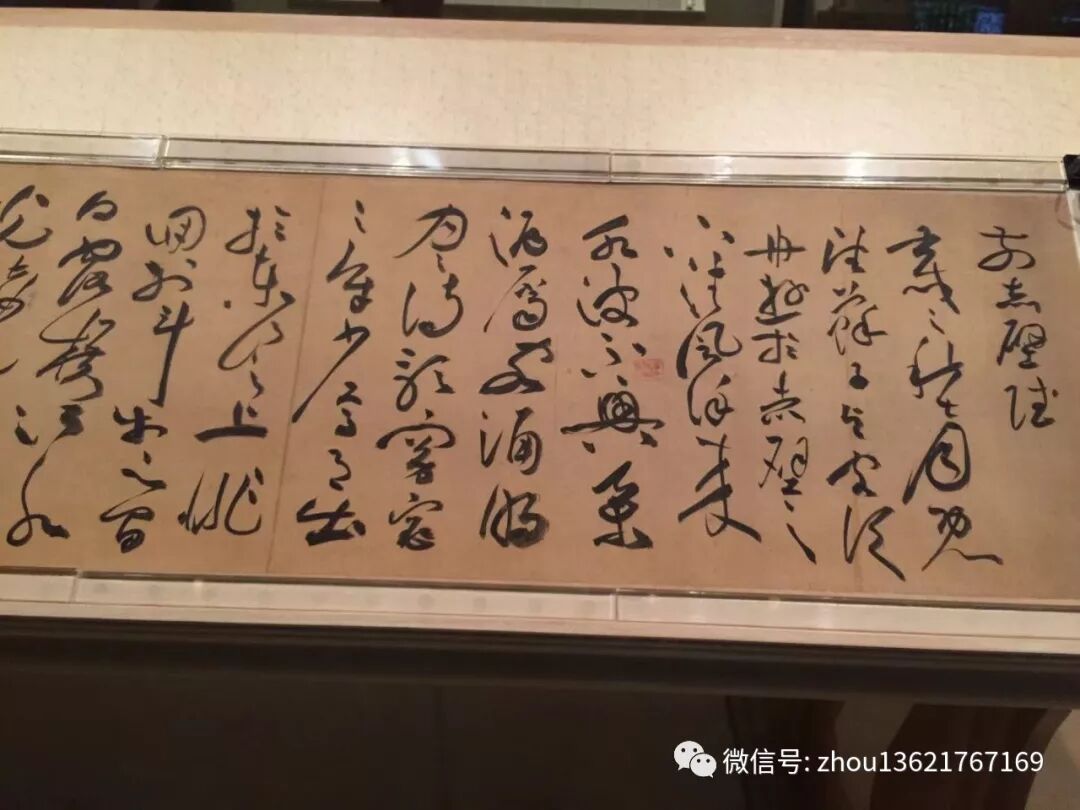 前赤壁賦
壬戌之秋七月既
望蘇子與客泛
舟遊於赤壁之
下清風徐來
水波不興舉
酒屬客誦明
月之詩歌窈窕
之章少焉月出
於東山之上徘
徊於斗牛之間
白露橫江水
微信号: zhou13621767169